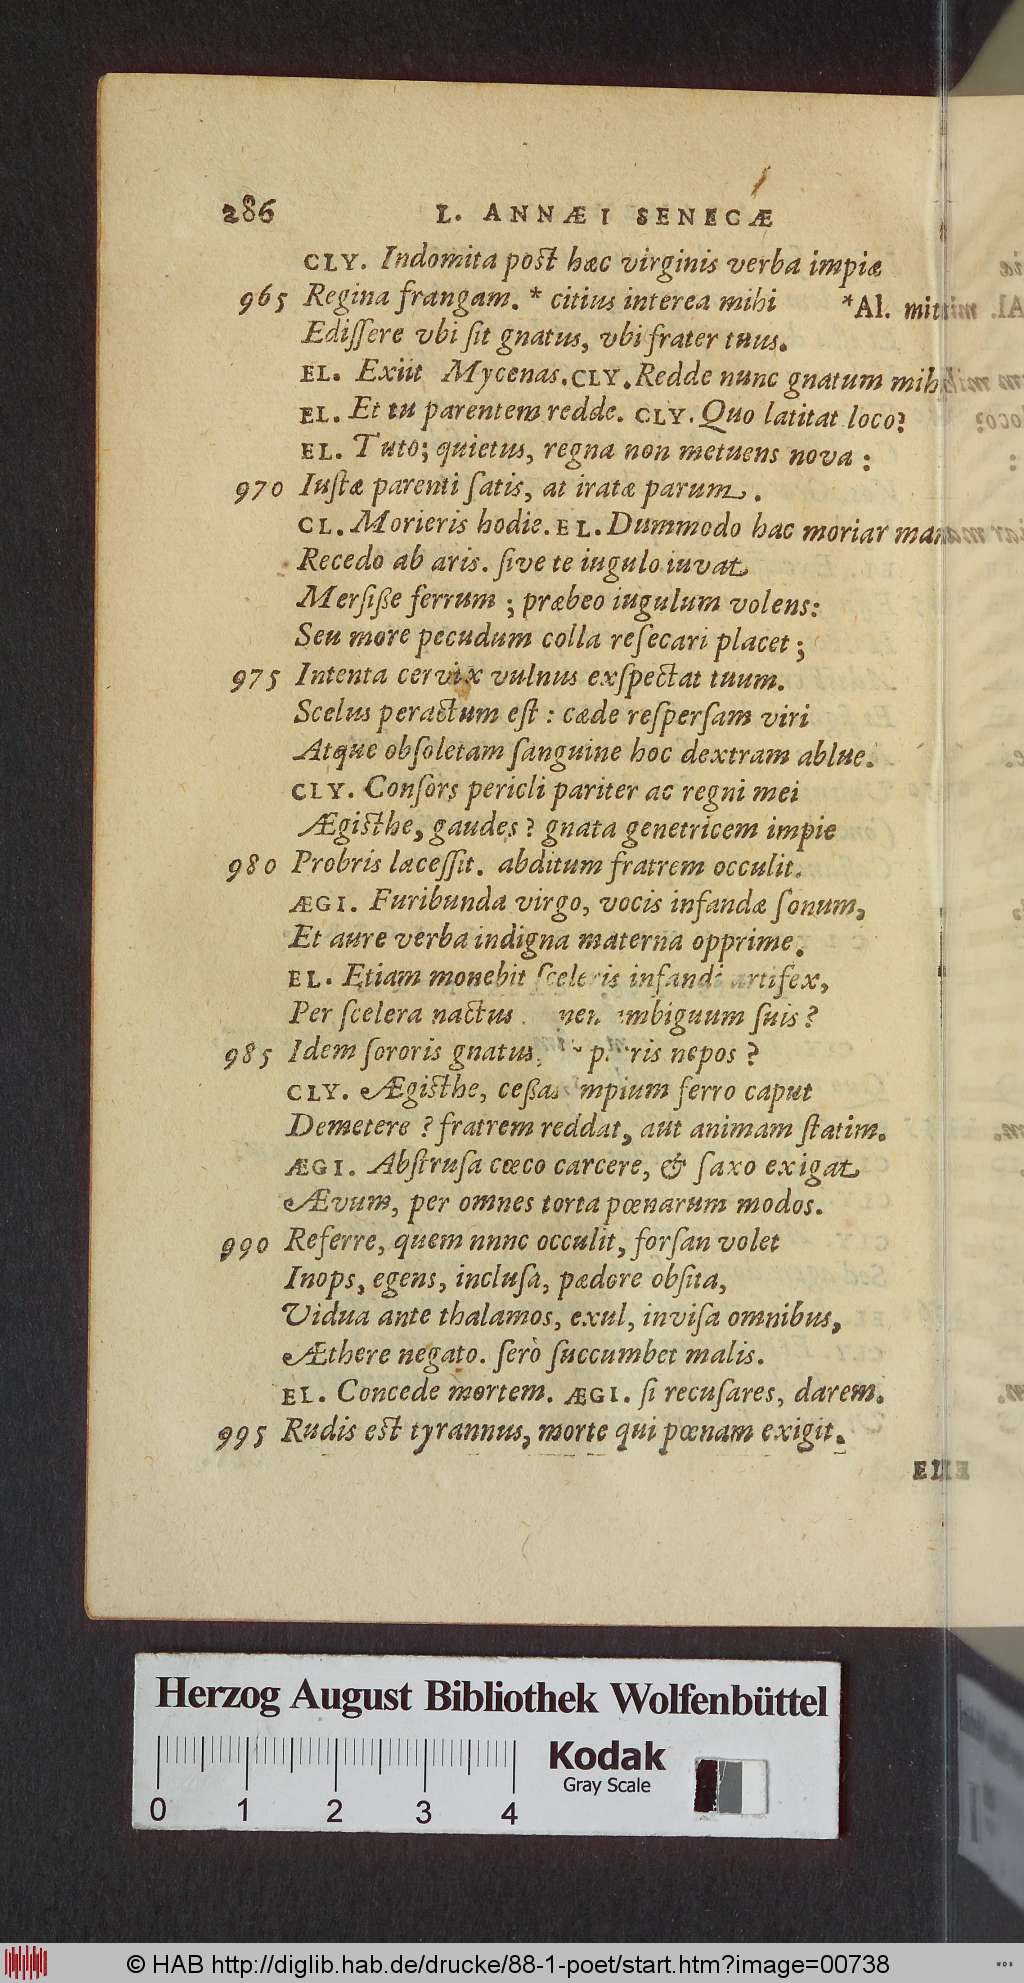 286 L. ANNÆI SENECÆ
CLY. Indomita post hæc virginis verba impiæ
965 Regina frangam. * citius interea mihi *Al. mitti
Edissere vbi sit gnatus, vbi frater tuus.
EL. Exiit Mycenas. CLY. Redde nunc gnatum mihi
EL. Et tu parentem redde. CLY. Quo latitat loco?
EL. Tuto; quietus, regna non metuens nova :
970 Iustæ parenti satis, at iratæ parum.
CL. Morieris hodie. EL. Dummodo hac moriar man
Recedo ab aris. sive te iugulo iuvat
Mersiße ferrum ; præbeo iugulum volens:
Seu more pecudum colla resecari placet ;
975 Intenta cervix vulnus exspectat tuum.
Scelus peractum est : cæde respersam viri
Atque obsoletam sanguine hoc dextram ablue.
CLY. Consors pericli pariter ac regni mei
Ægisthe, gaudes ? gnata genetricem impie
980 Probris lacessit. abditum fratrem occulit.
ÆGI. Furibunda virgo, vocis infandæ sonum,
Et aure verba indigna materna opprime.
EL. Etiam monebit sceleris infandi artifex,
Per scelera nactus nen ambiguum suis ?
985 Idem sororis gnatus, nepos ?
CLY. Ægisthe, ceßas impium ferro caput
Demetere ? fratrem reddat, aut animam statim.
ÆGI. Abstrusa cœco carcere, & saxo exigat
Ævum, per omnes torta pœnarum modos.
990 Referre, quem nnnc occulit, forsan volet
Inops, egens, inclusa, pædore obsita,
Vidua ante thalamos, exul, invisa omnibus,
Æthere negato. serò succumbet malis.
EL. Concede mortem. ÆGI. si recusares, darem.
995 Rudis est tyrannus, morte qui pœnam exigit.
EL
Herzog August Bibliothek Wolfenbüttel
Kodak
Gray Scale
0 1 2 3 4
© HAB http://diglib.hab.de/drucke/88-1-poet/start.htm?image=00738